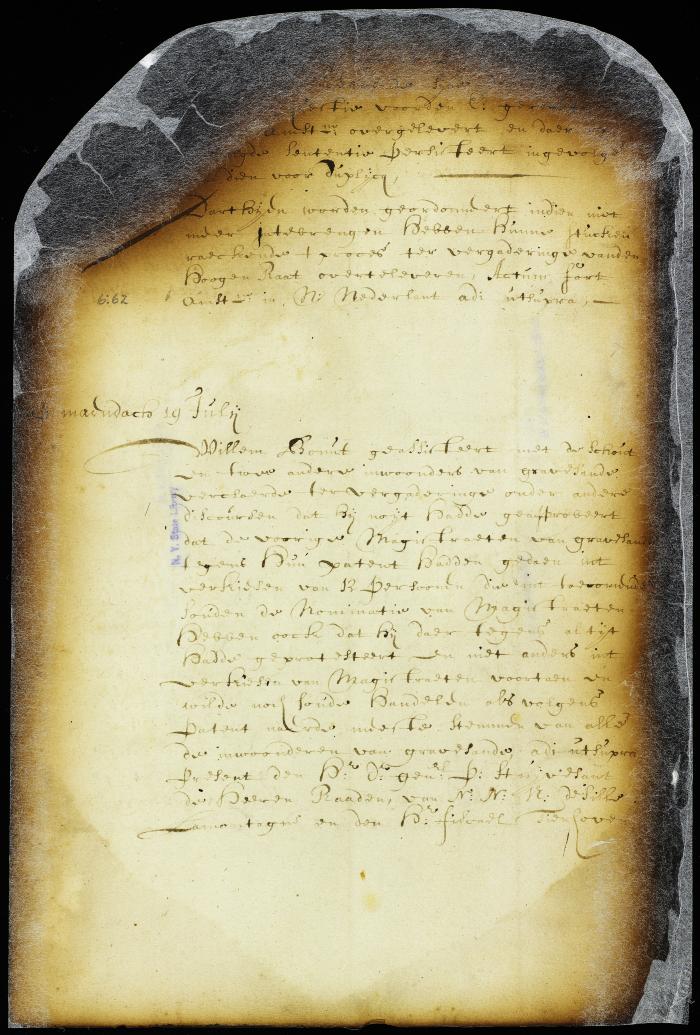 voorden
Amst: overgelevert en daer
sententie persisteert ingevolge
dien voor duplijcq,
Parthijen worden geordonneert indien niet
meer intebrengen hebben hunne stucken
raeckende t proces ter vergaderinge vanden
Hoogen Raat overteleveren, Actum fort
Amst: in N: Nederlant adi utsupra,
6:62
maendach 19 Julij
Willem geassisteert met de schout
en twee andere inwoonders van gravesande
verclaerde ter vergaderinge onder andere
discoursen dat hij noyt hadde geapprobeert
dat de voorige Magistraeten van gravesand
tegens hun patent hadden gedaen int
verkiesen van 12 persoonen die int toecomende
souden de Nominatie van Magistraeten
hebben oock dat hij daer tegens altijt
hadde geprotesteert en niet anders int
verkiesen van Magistraeten voortaen en
wilde noch soude handelen als volgens
patent naerde meeste stemmen van alle
de inwoonderen van gravesande, adi utsupra
Present den Hr: Dr: genl: P: Stuijvesant
de Heeren Raaden, van N: N: N: de Sille
Lamontagne en den Hr: fiscael Tienhoven
N. Y. State Library